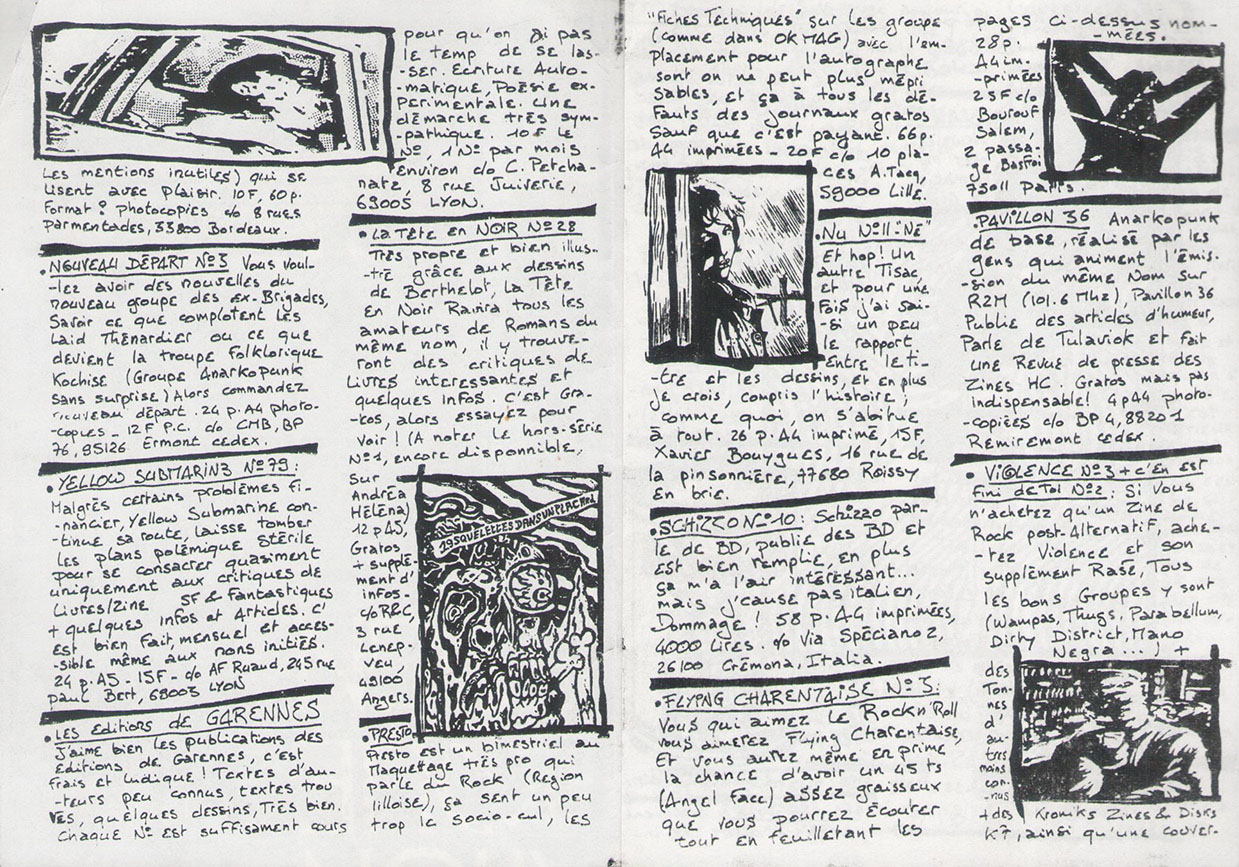 Les mentions inutiles) qui se
lisent avec plaisir. 10F, 60p.
Format ? Photocopies c/o 8 rues
Parmentades, 33800 Bordeaux.
• NOUVEAU DÉPART N°3 Vous voul-
-lez avoir des nouvelles du
nouveau groupe des ex-Brigades,
Savoir ce que complotent les
Laid Thénardier ou ce que
devient la troupe Folklorique
Kochise (Groupe Anarkopunk
sans surprise) Alors commandez
nouveau départ. 24 p. A4 photo-
-copies - 12F P.C. c/o CMB, BP
76, 95126. Ermont cedex.
• YELLOW SUBMARINE N°79:
Malgrès certains problèmes fi-
-nancier, Yellow Submarine con-
-tinue sa route, laisse tomber
les plans polémique stérile
pour se consacrer quasiment
uniquement aux critiques de
Livres/zine SF & Fantastiques
+ quelques infos et Articles. C'
est bien fait, mensuel et acces-
-sible même aux nons initiés.
24 p. A5 - 15F - c/o AF Ruaud, 245 rue
paul Bert, 69003 LYON
• LES EDITIONS de GARENNES
J'aime bien les publications des
Editions de Garennes, c'est
frais et ludique ! Textes d'au-
-teurs peu connus, textes trou
vés, quelques dessins, Très bien.
Chaque N° est suffisament cours
pour qu'on ai pas
le temp de se las-
-ser. Ecriture Auto-
-matique, Poésie ex-
-perimentale. Une
démarche très sym-
-pathique. 10F le
N°, 1 N° par mois
Environ c/o C. Petcha-
natz, 8 rue Juiverie,
69005 LYON.
• LA TÊTE en NOIR N°28
Très propre et bien illus-
-tré grâce aux dessins
de Berthelot, La Tête
en Noir Ravira tous les
amateurs de Romans du
même nom, il y trouve-
ront des critiques de
Livres interessantes et
quelques infos. C'est Gra-
-tos, alors essayez pour
voir ! (A noter le hors-série
N°1, encore disponnible,
Sur
Andréa
Héléna)
12 p A5,
Gratos
+ supplé-
ment d'
infos.
c/o R&C,
3 rue
Lenep-
veu,
49100
Angers.
29 SQUELETTES DANS UN PLACARD
• PRESTO
Presto est un bimestriel au
Maquettage très pro qui
parle du Rock (Region
lilloise), ça sent un peu
trop le socio-cul, les
"Fiches Techniques" sur les groupe
(comme dans OK MAG) avec l'em-
placement pour l'autographe
sont on ne peut plus mépri
sables, et ça à tous les dé-
fauts des journaux gratos
sauf que c'est payant. 66p.
A4 imprimées - 20F c/o 10 pla-
ces A. Tacq,
59000 Lille.
• Nu N°11: NE"
Et hop ! Un
autre Tisac,
et pour une
Fois j'ai sai-
-si un peu
le rapport
Entre le ti-
-tre et les dessins, et en plus
je crois, compris l'histoire ;
comme quoi, on s'abitue
à tout. 26 p. A4 imprimé, 15F,
Xavier Bouygues, 16 rue de
la pinsonnière, 77680 Roissy
En brie.
• SCHIZZO N°10: Schizzo par-
le de BD, publie des BD et
est bien remplie, en plus
ça m'a l'air intéressant...
mais j'cause pas italien,
Dommage ! 58 p. A4 imprimées,
4000 Lires. c/o Via Spéciano 2,
26100 Crémona, Italia.
• FLYING CHARENTAISE N°5:
Vous qui aimez le Rock n'Roll
vous aimerez Flying Charentaise,
Et vous aurez même en prime
la chance d'avoir un 45 ts
(Angel Face) assez graisseux
que vous pourrez écouter
tout en feuilletant les
pages ci-dessus nom-
-mées.
28p.
A4 im-
-primées
25F c/o
Bourouf
Salem,
2 passa-
ge Basfroi
75011 Paris.
• PAVILLON 36 Anarkopunk
de base, réalisé par les
gens qui animent l'émis-
-sion du même nom sur
R2M (101.6 Mhz), Pavillon 36
Publie des articles d'humeur,
Parle de Tulaviok et fait
une Revue de presse des
Zines HC. Gratos mais pas
indispensable! 4 p A4 photo-
-copiées c/o BP 4, 88201
Remiremont cedex.
• VIOLENCE N°3 + c'En est
Fini de Toi N°2 : Si Vous
n'achetez qu'un Zine de
Rock post-Alternatif, ache-
-tez Violence et son
supplément Rase, Tous
les bons Groupes y sont
(Wampas, Thugs, Parabellum,
Dirty District, Mano
Negra...) +
des
Ton-
nes
d'
au-
tres
moins
con-
-nus
+ des Kroniks Zines & Disks
K7, ainsi qu'une couver-